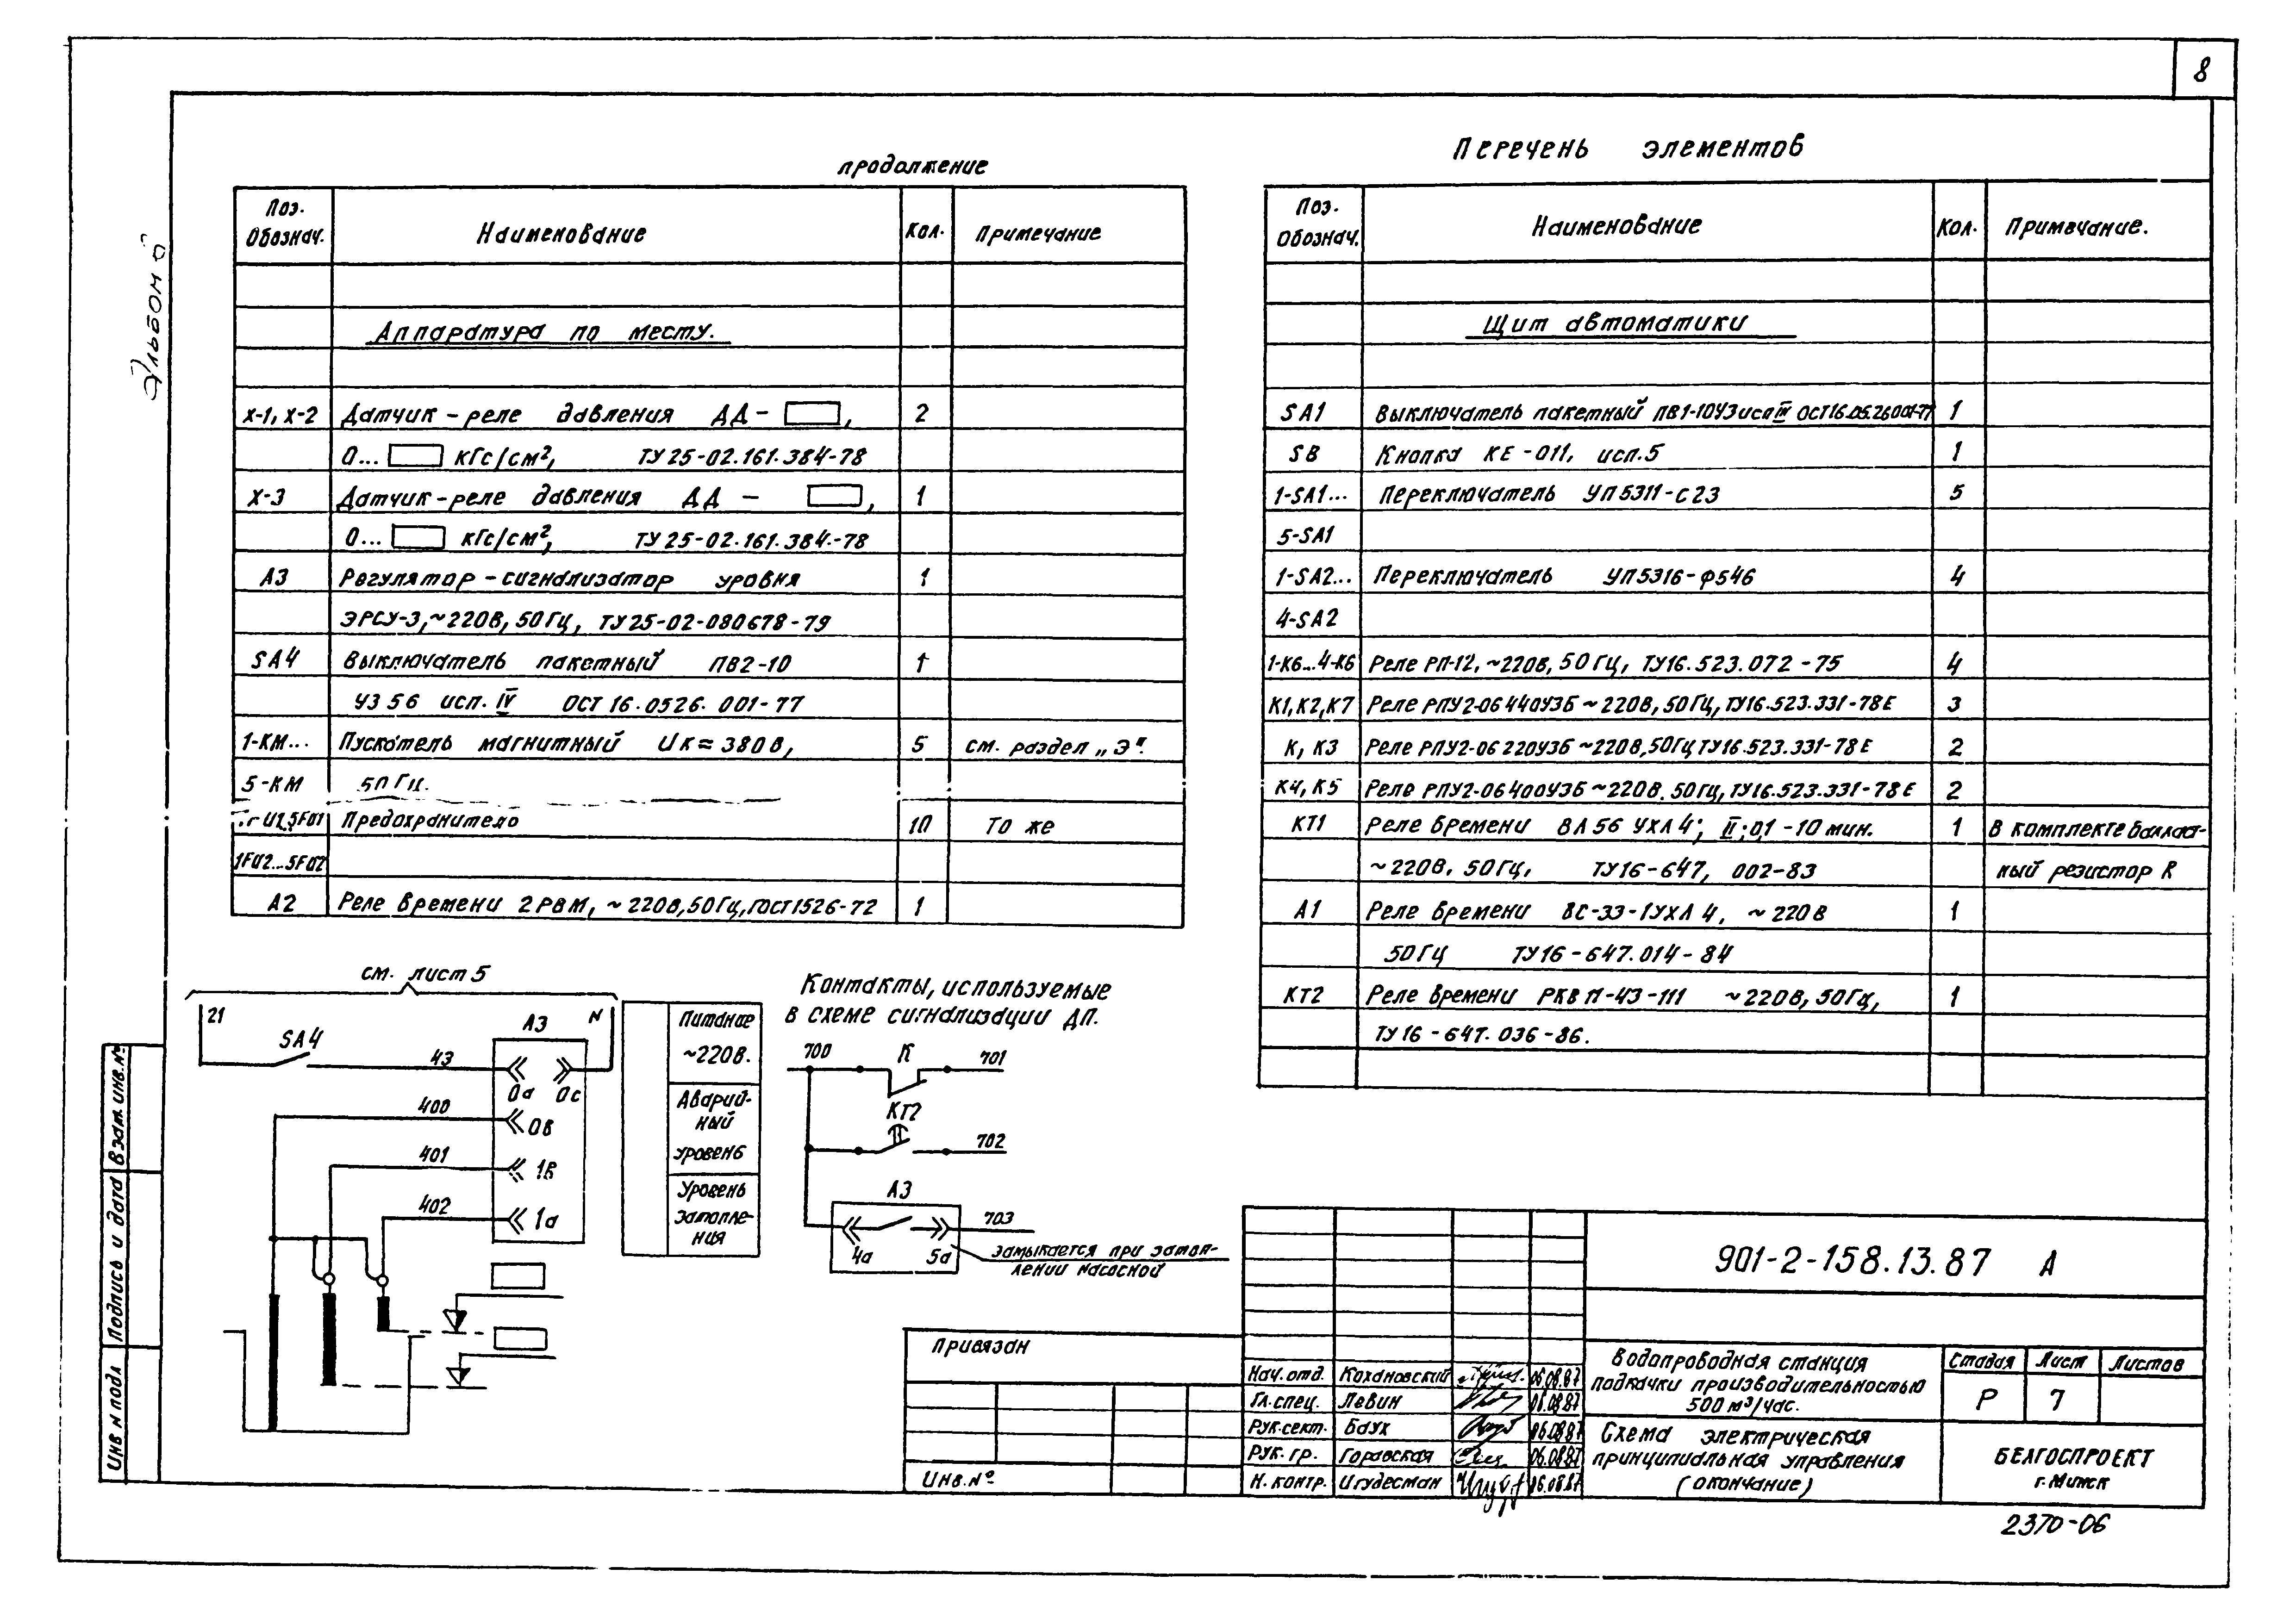 8
Альбом 6
продолжение
Поз. Обознач. Наименование Кол. Примечание
Аппаратура по месту.
Х-1, Х-2 Датчик-реле давления ДД- , 2
0... кгс/см², ТУ 25-02.161.384-78
Х-3 Датчик-реле давления ДД - , 1
0... кгс/см², ТУ 25-02.161.384.-78
А3 Регулятор-сигнализатор уровня 1
ЭРСУ-3, ~220В, 50Гц, ТУ25-02-080678-79
SA4 Выключатель пакетный ПВ2-10 1
У3 56 исп. IV ОСТ 16.0526.001-77
1-КМ... Пускатель магнитный Uк≈380В, 5 см. раздел „Э".
5-КМ 50 Гц.
Предохранитель 10 То же
1FU2...5FU2
А2 Реле времени 2РВМ, ~220В, 50Гц, ГОСТ1526-72 1
Перечень элементов
Поз. Обознач. Наименование Кол. Примечание.
Щит автоматики
SA1 Выключатель пакетный ПВ1-10У3 исп III ОСТ16.05.26001-77 1
SB Кнопка КЕ-011, исп.5 1
1-SA1... Переключатель УП5311-С23 5
5-SA1
1-SA2... Переключатель УП5316-Ф546 4
4-SA2
1-К6...4-К6 Реле РП-12, ~220В, 50Гц, ТУ16.523.072-75 4
К1, К2, К7 Реле РПУ2-06440У3Б ~220В, 50Гц, ТУ16.523.331-78Е 3
К, К3 Реле РПУ2-06220У3Б ~220В, 50Гц ТУ16.523.331-78Е 2
К4, К5 Реле РПУ2-06400У3Б ~220В. 50Гц, ТУ16.523.331-78Е 2
КТ1 Реле времени ВЛ56 УХЛ4; II; 0,1-10 мин. 1 В комплекте балласт-
~220В, 50Гц, ТУ16-647, 002-83 ный резистор R
А1 Реле времени ВС-33-1УХЛ4, ~220В 1
50Гц ТУ16-647.014-84
КТ2 Реле времени РКВ11-43-111 ~220В, 50Гц, 1
ТУ16-647.036-86.
см. лист 5
21 SA4 43 А3 N
0а 0с
400 0в
401 1в
402 1а
Питание
~220В.
Аварий-
ный
уровень
Уровень
затопле-
ния
Контакты, используемые
в схеме сигнализации ДП.
700 К 701
КТ2 702
А3 703
4а 5а
замыкается при затоп-
лении насосной
Взам. инв.№
Подпись и дата
Инв № подл
Привязан
Инв.№
Нач.отд. Кохановский 06.08.87
Гл.спец. Левин 06.08.87
Рук.сект. Баух 06.08.87
Рук. гр. Горавская 06.08.87
Н. контр. Игудесман 06.08.87
901-2-158.13.87 А
Водопроводная станция
подкачки производительностью
500 м³/час.
Стадия Лист Листов
Р 7
Схема электрическая
принципиальная управления
(окончание)
БЕЛГОСПРОЕКТ
г. Минск
2370-06